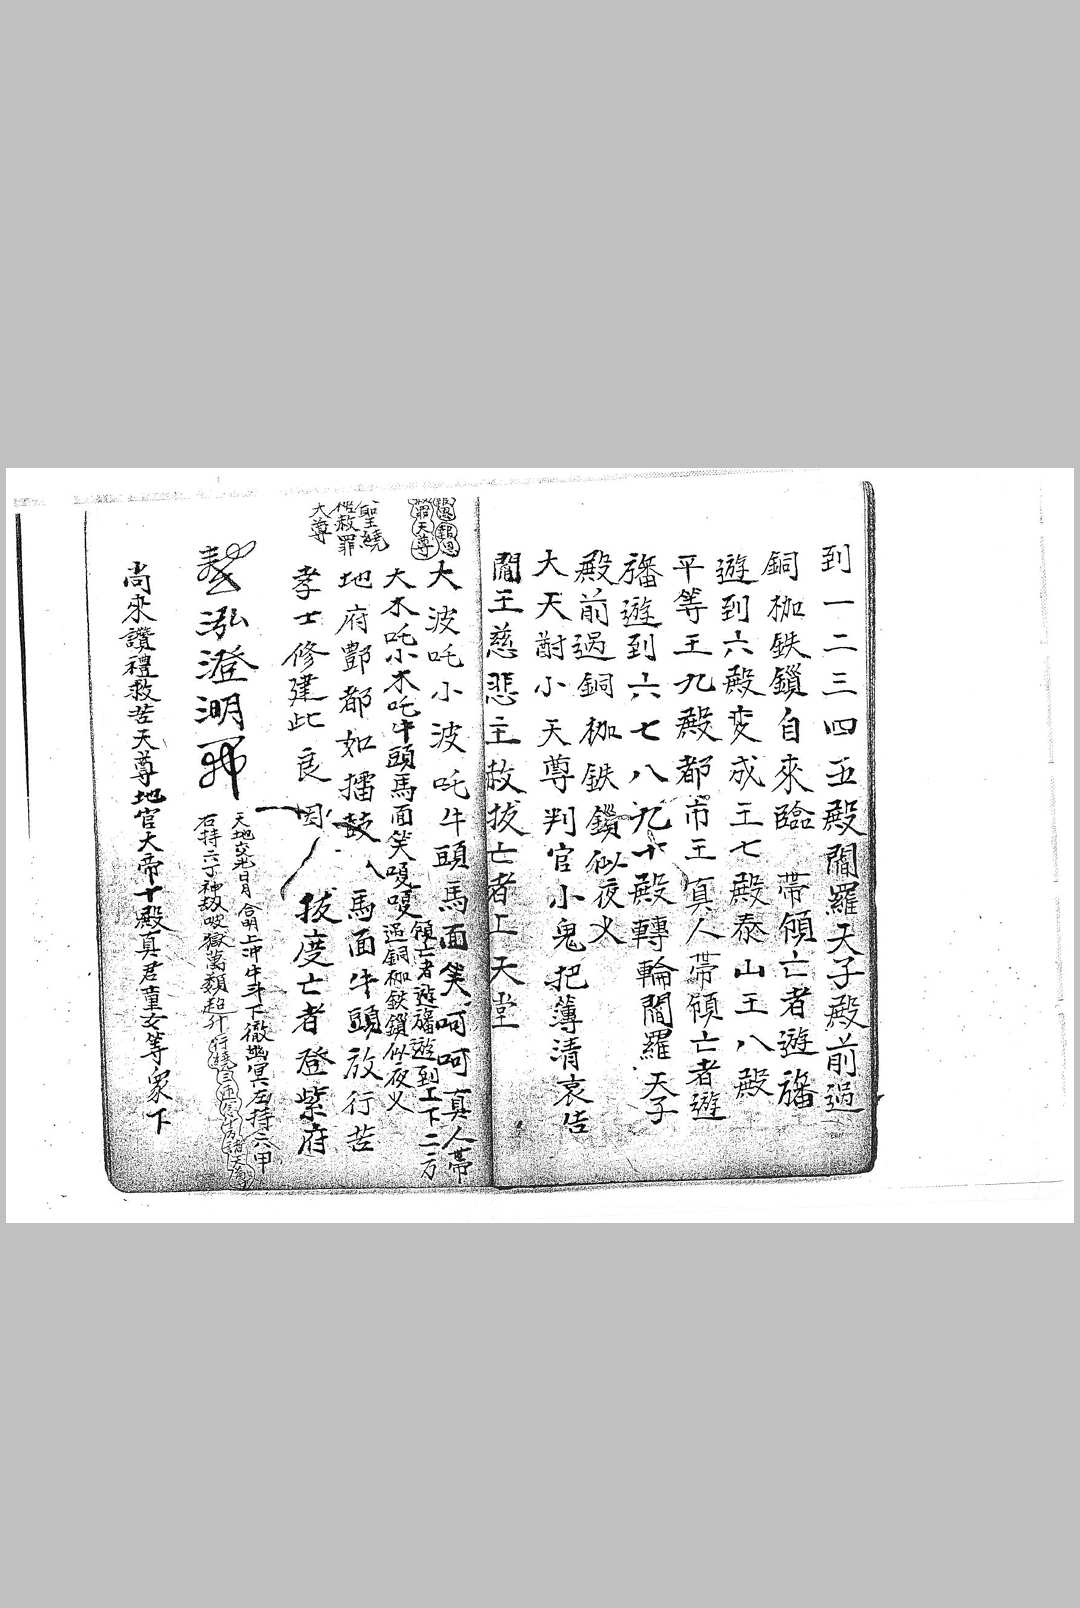 到一二三四五殿閻羅天子殿前過
銅枷鉄鎖自來臨 帶領亡者遊旛
遊到六殿変成王七殿泰山王八殿
平等王九殿都市王真人帶領亡者遊
旛遊到六七八九十殿轉輪閻羅天子
殿前過銅枷鉄鎖似夜乂
大天尉小天尊判官小鬼把簿清哀告
閻王慈悲主赦拔亡者上天堂
大波吒小波吒牛頭馬面笑呵呵真人帶
領亡者遊旛遊到上下二方
大木吒小木吒牛頭馬面笑嗄嗄
過銅枷鉄鎖似夜乂
地府酆都如擂鼓 馬面牛頭放行苦
孝士修建此良因 拔度亡者登紫府
救罪天尊
大聖繞
極救罪
大尊
泓澄湖
天地交光日月合明上冲牛斗下徹幽冥左持六甲
右持六丁神劫破獄萬類超升行繞
尚來讚禮救苦天尊地官大帝十殿真君童女等衆下